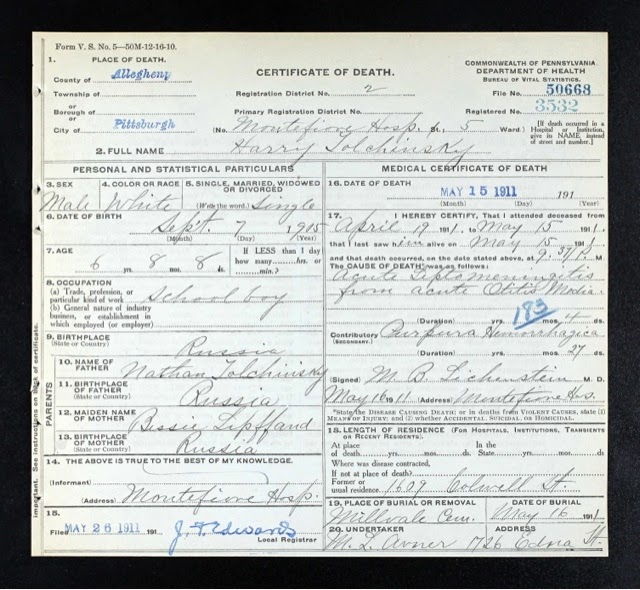 Form V. S. No. 5—50M-12-16-10.
1. PLACE OF DEATH
County of Allegheny
Township of
or
Borough of
or
City of Pittsburgh
CERTIFICATE OF DEATH.
Registration District No. 2
Primary Registration District No.
(No. Montefiore Hosp. 5 Ward)
COMMONWEALTH OF PENNSYLVANIA
DEPARTMENT OF HEALTH
BUREAU OF VITAL STATISTICS.
File No. 50668
Registered No. 3532
[If death occurred in a Hospital or Institution, give its NAME instead of street and number.]
2. FULL NAME Harry Tolchinsky
PERSONAL AND STATISTICAL PARTICULARS
3. SEX Male
4. COLOR OR RACE White
5. SINGLE, MARRIED, WIDOWED OR DIVORCED
(Write the word.) Single
6. DATE OF BIRTH
Sept. 7 1905
(Month) (Day) (Year)
7. AGE
6 yrs. 8 mos. 8 ds.
If LESS than 1 day how many....hrs. or ....min.?
8. OCCUPATION
(a) Trade, profession, or particular kind of work School boy
(b) General nature of industry business, or establishment in which employed (or employer)
9. BIRTHPLACE
(State or Country) Russia
PARENTS
10. NAME OF FATHER Nathan Tolchinsky
11. BIRTHPLACE OF FATHER
(State or Country) Russia
12. MAIDEN NAME OF MOTHER Bessie
13. BIRTHPLACE OF MOTHER
(State or Country) Russia
14. THE ABOVE IS TRUE TO THE BEST OF MY KNOWLEDGE.
(Informant)
(Address) Montefiore Hosp.
15.
Filed MAY 26 1911 191 J. T. Edwards
Local Registrar
MEDICAL CERTIFICATE OF DEATH
16. DATE OF DEATH
MAY 15 1911 191
(Month) (Day) (Year)
17. I HEREBY CERTIFY, That I attended deceased from
April 19 1911, to May 15 1911
that I last saw him alive on May 15 1911
and that death occurred, on the date stated above, at M
The CAUSE OF DEATH* was as follows:
Acute Leptomeningitis
from acute Otitis Media
183
(Duration) yrs. mos. 4 ds.
Contributory Purpura Hemorrhagica
(SECONDARY.)
(Duration) yrs. mos. 27 ds.
(Signed) M. B. Lichenstein M. D.
May 16 1911 Montefiore Hos.
*State the DISEASE CAUSING DEATH; or in deaths from VIOLENT CAUSES, state (1) MEANS OF INJURY; and (2) whether ACCIDENTAL, SUICIDAL, or HOMICIDAL.
18. LENGTH OF RESIDENCE (FOR HOSPITALS, INSTITUTIONS, TRANSIENTS OR RECENT RESIDENTS).
At place of death yrs. mos. ds. In the State yrs. mos. ds.
Where was disease contracted,
if not at place of death?
Former or
usual residence. 1609 Colwell St.
19. PLACE OF BURIAL OR REMOVAL
Millvale Cem.
DATE OF BURIAL
May 16 1911
20. UNDERTAKER
M. L. Avner
ADDRESS
1726 Edna St.
important. See instructions on back of certificate.